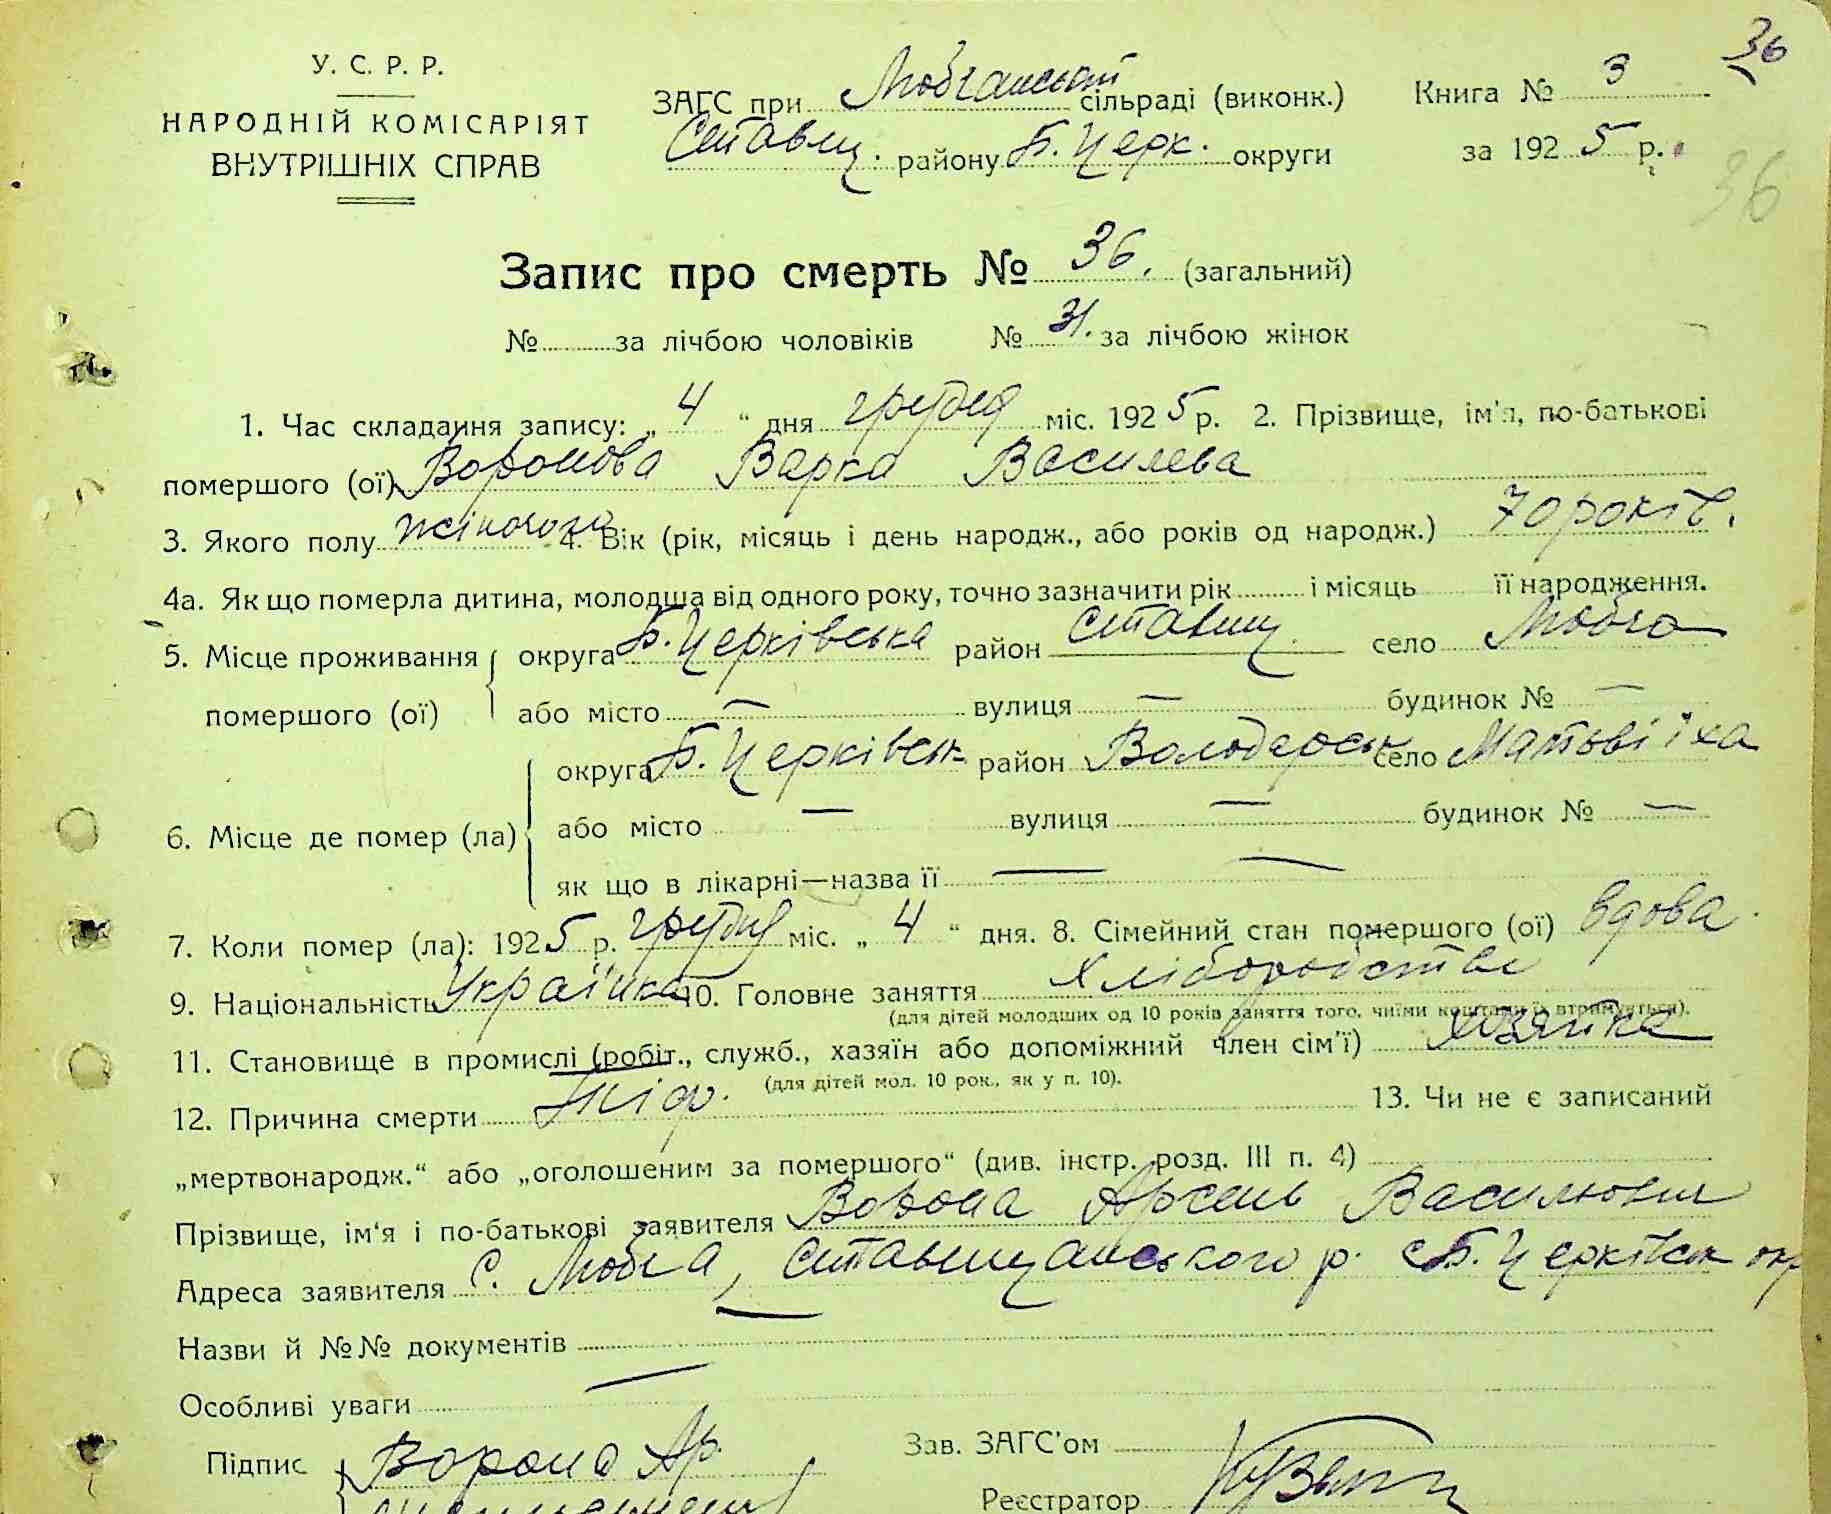 36
У. С. Р. Р.
НАРОДНІЙ КОМІСАРІЯТ
ВНУТРІШНІХ СПРАВ
ЗАГС при сільраді (виконк.) Книга № 3
Ставищ. району Б. Церк. округи за 1925 р.
36
Запис про смерть № 36. (загальний)
№ за лічбою чоловіків № 31. за лічбою жінок
1. Час складання запису: „ 4 “ дня грудня міс. 1925 р. 2. Прізвище, ім'я, по-батькові
помершого (ої) Воронова Варка Василева
3. Якого полу жіночого 4. Вік (рік, місяць і день народж., або років од народж.) 70 років.
4а. Як що померла дитина, молодша від одного року, точно зазначити рік і місяць її народження.
5. Місце проживання округа Б. Церківська район Ставищ. село
помершого (ої) або місто — вулиця — будинок № —
округа Б. Церківськ район Володарськ село Матвіїха
6. Місце де помер (ла) або місто — вулиця — будинок № —
як що в лікарні—назва її — —
7. Коли помер (ла): 1925 р. грудня міс. „ 4 “ дня. 8. Сімейний стан помершого (ої) вдова
9. Національність Українка 10. Головне заняття Хліборобство
(для дітей молодших од 10 років заняття того, чиїми коштами їх втримується).
11. Становище в промислі (робіт., служб., хазяїн або допоміжний член сім'ї) хозяйка
(для дітей мол. 10 рок., як у п. 10).
12. Причина смерти 13. Чи не є записаний
„мертвонародж.“ або „оголошеним за помершого“ (див. інстр. розд. III п. 4)
Прізвище, ім'я і по-батькові заявителя Ворона Арсень Василович
Адреса заявителя с. Ставищанського р. Б. Церківськ окр
Назви й №№ документів —
Особливі уваги —
Підпис Ворона Ар. Зав. ЗАГС'ом
Реєстратор